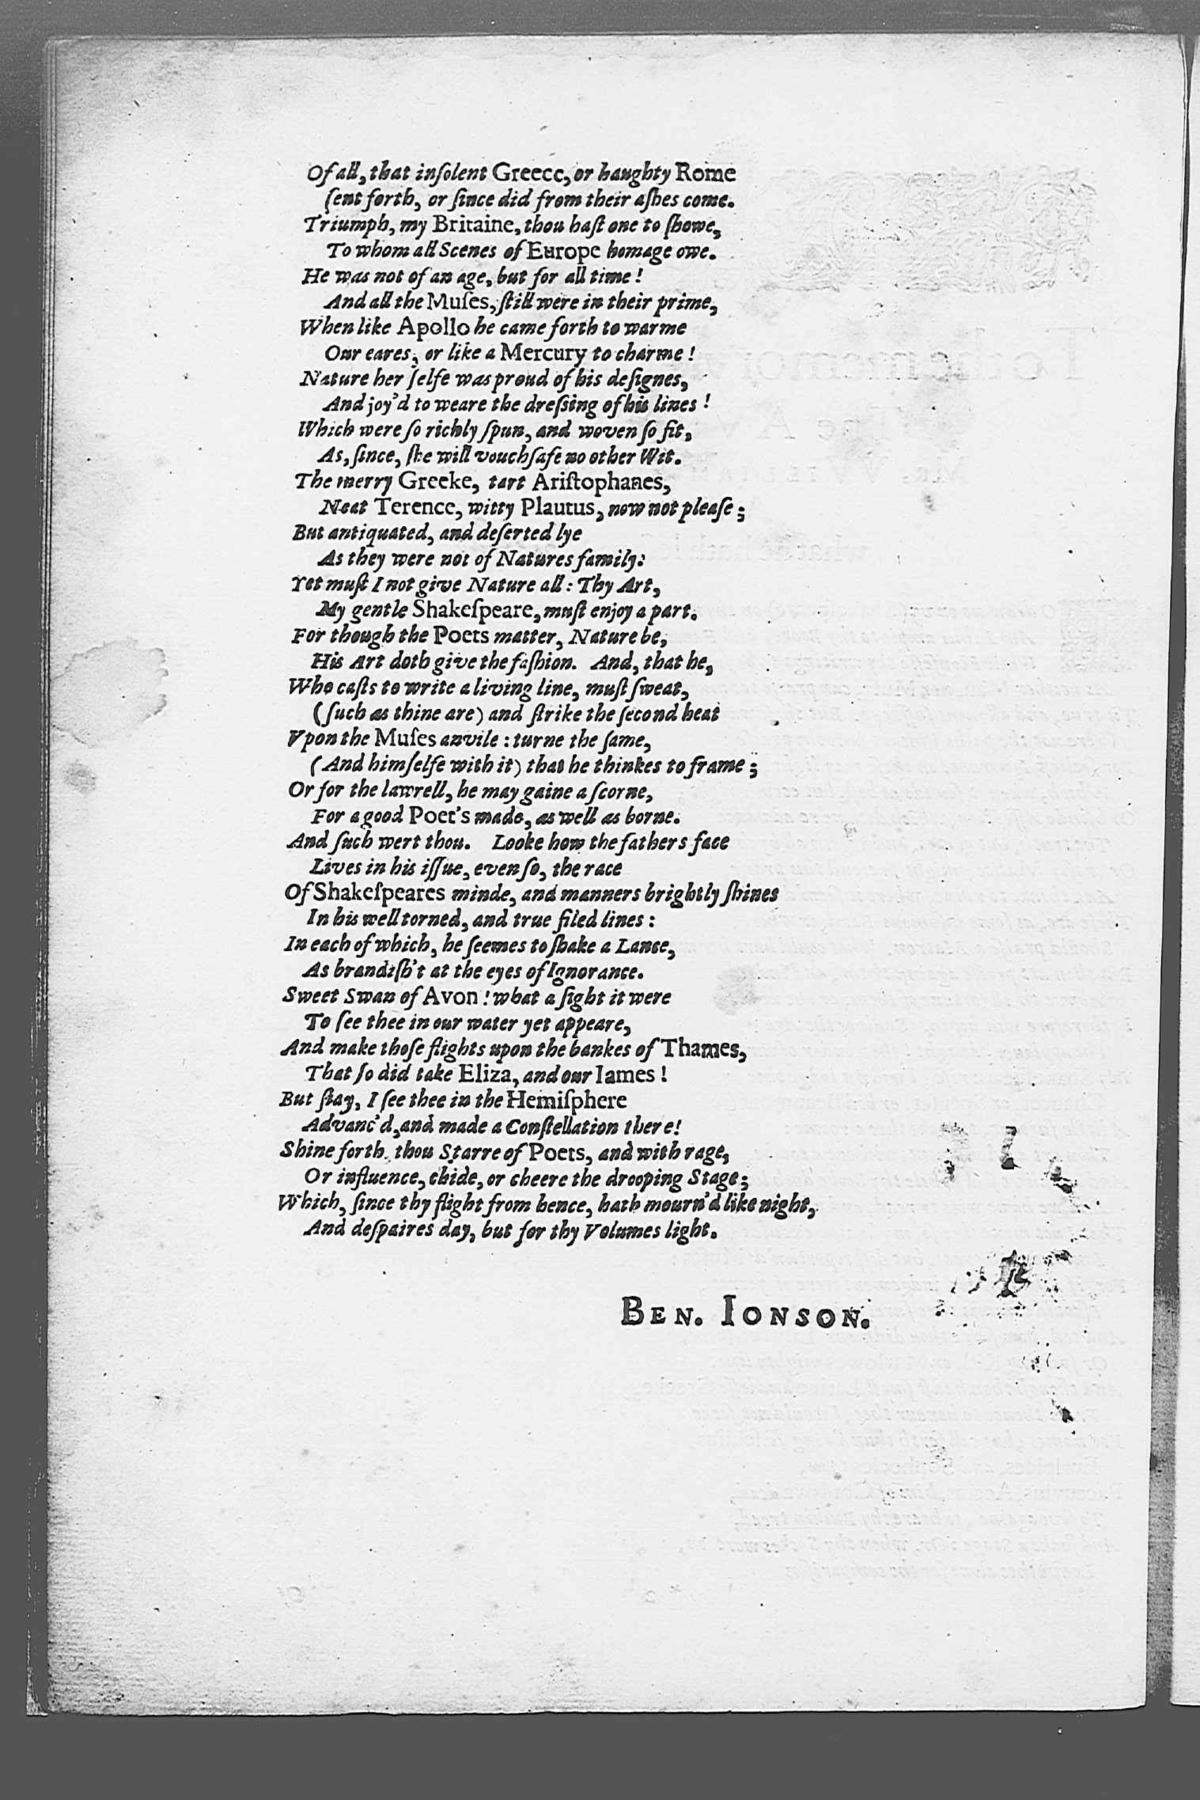 Of all, that inſolent Greece, or haughty Rome
ſent forth, or ſince did from their aſhes come.
Triumph, my Britaine, thou haſt one to ſhowe,
To whom all Scenes of Europe homage owe.
He was not of an age, but for all time!
And all the Muſes, ſtill were in their prime,
When like Apollo he came forth to warme
Our eares, or like a Mercury to charme!
Nature her ſelfe was proud of his deſignes,
And joy'd to weare the dreſſing of his lines!
Which were ſo richly ſpun, and woven ſo fit,
As, ſince, ſhe will vouchſafe no other Wit.
The merry Greeke, tart Ariſtophanes,
Neat Terence, witty Plautus, now not pleaſe;
But antiquated, and deſerted lye
As they were not of Natures family.
Yet muſt I not give Nature all: Thy Art,
My gentle Shakeſpeare, muſt enjoy a part.
For though the Poets matter, Nature be,
His Art doth give the faſhion. And, that he,
Who caſts to write a living line, muſt ſweat,
(ſuch as thine are) and ſtrike the ſecond heat
Vpon the Muſes anvile: turne the ſame,
(And himſelfe with it) that he thinkes to frame;
Or for the lawrell, he may gaine a ſcorne,
For a good Poet's made, as well as borne.
And ſuch wert thou. Looke how the fathers face
Lives in his iſſue, even ſo, the race
Of Shakeſpeares minde, and manners brightly ſhines
In his well torned, and true filed lines:
In each of which, he ſeemes to ſhake a Lance,
As brandiſh't at the eyes of Ignorance.
Sweet Swan of Avon! what a ſight it were
To ſee thee in our water yet appeare,
And make thoſe flights upon the bankes of Thames,
That ſo did take Eliza, and our Iames!
But ſtay, I ſee thee in the Hemiſphere
Advanc'd, and made a Conſtellation there!
Shine forth, thou Starre of Poets, and with rage,
Or influence, chide, or cheere the drooping Stage;
Which, ſince thy flight from hence, hath mourn'd like night,
And deſpaires day, but for thy Volumes light.
BEN. IONSON.